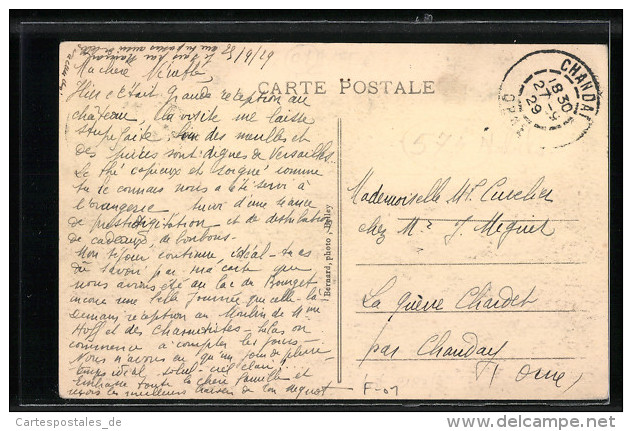 25/9/29
CARTE POSTALE
Ma chère
Hier c'était grande réception au
château, la visite me laisse
stupéfaite. des meubles et
des pièces sont dignes de Versailles.
Le thé copieux et soigné comme
tu le connais nous a été servi à
l'orangerie suivi d'une séance
de prestidigitation et de distribution
de cadeaux, de bonbons-
Mon séjour continue, idéal- tu as
dû savoir par ma carte que
nous avions été au lac du Bourget
encore une belle journée que celle-là-
demain réception au Moulin de Mme
Hoff et des - hélas on
commence à compter les jours-
Nous n'avons eu qu'un jour de pluie,
temps idéal - soleil - ciel clair,
Embrasse toute la chère famille et
reçois les meilleurs baisers de ton
Bernard, photo, Belley
CHANDAI
18 30
27-9
29
ORNE
Mademoiselle
chez Mr J.
La
par Chanday
Orne
F-01
Cartespostales_de
www.delcampe.net